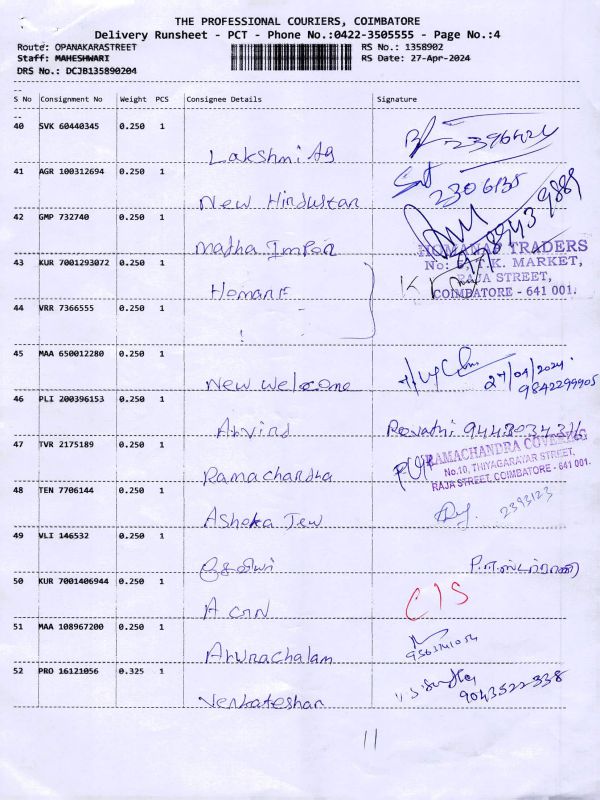 THE PROFESSIONAL COURIERS, COIMBATORE
Delivery Runsheet - PCT - Phone No.:0422-3505555 - Page No.:4
Route: OPANAKARASTREET RS No.: 1358902
Staff: MAHESHWARI RS Date: 27-Apr-2024
DRS No.: DCJB135890204
S No Consignment No Weight PCS Consignee Details Signature
40 SVK 60440345 0.250 1
Lakshmi Ag
41 AGR 100312694 0.250 1
New Hindustan 2306135
42 GMP 732740 0.250 1
Madha
HOMANAS TRADERS
43 KUR 7001293072 0.250 1 K. MARKET,
RAJA STREET,
COIMBATORE - 641 001.
44 VRR 7366555 0.250 1
45 MAA 650012280 0.250 1
New Welcome 27/04/2024
9842299905
46 PLI 200396153 0.250 1
Arvind Revathi
47 TVR 2175189 0.250 1 RAMACHANDRA COVERING
No.10, THIYAGARAYAR STREET,
Ramachandra RAJA STREET, COIMBATORE - 641 001.
48 TEN 7706144 0.250 1
Ashoka Jew 2393123
49 VLI 146532 0.250 1
50 KUR 7001406944 0.250 1
CIS
51 MAA 108967200 0.250 1
Arunachalam
52 PRO 16121056 0.325 1
Venkateshan 9043522338
11